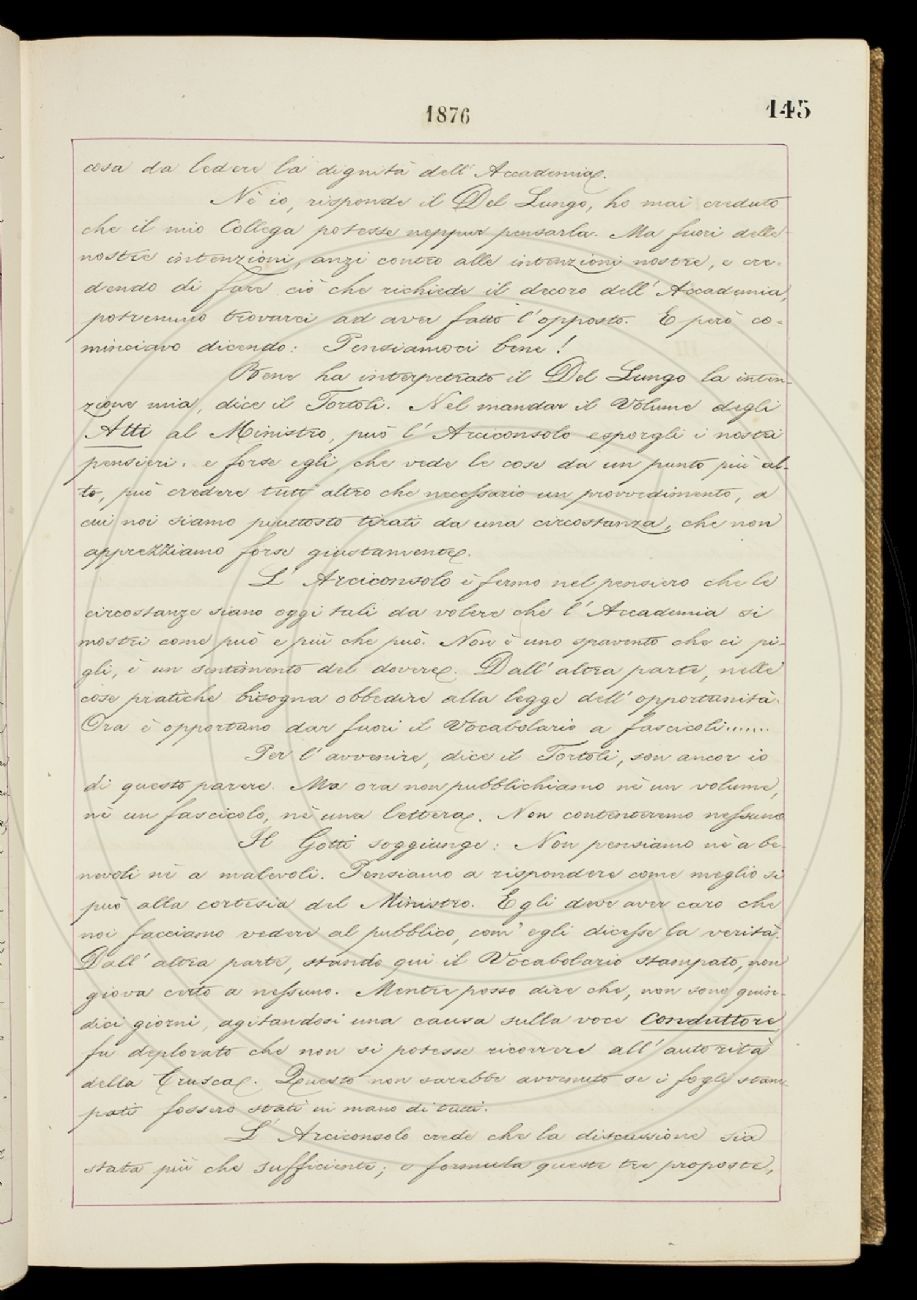 1876
145
cosa da ledere la dignità dell'Accademia.
Nè io, risponde il Del Lungo, ho mai creduto
che il mio Collega potesse neppur pensarla. Ma fuori delle
nostre intenzioni, anzi contro alle intenzioni nostre, e cre-
dendo di fare ciò che richiede il decoro dell'Accademia,
potremmo trovarci ad aver fatto l'opposto. E però co-
minciavo dicendo: Pensiamoci bene!
Bene ha interpetrato il Del Lungo la inten-
zione mia, dice il Tortoli. Nel mandar il Volume degli
Atti al Ministro, può l'Arciconsolo esporgli i nostri
pensieri: e forse egli, che vede le cose da un punto più al-
to, può credere tutt'altro che necessario un provvedimento, a
cui noi siamo piuttosto tirati da una circostanza, che non
apprezziamo forse giustamente.
L'Arciconsolo è fermo nel pensiero che le
circostanze siano oggi tali da volere che l'Accademia si
mostri come può e più che può. Non è uno spavento che ci pi-
gli, è un sentimento del dovere. Dall'altra parte, nelle
cose pratiche bisogna obbedire alla legge dell'opportunità.
Ora è opportuno dar fuori il Vocabolario a fascicoli.......
Per l'avvenire, dice il Tortoli, son ancor io
di questo parere. Ma ora non pubblichiamo nè un volume,
nè un fascicolo, nè una lettera. Non contenteremo nessuno
Il Gotti soggiunge: Non pensiamo nè a be-
nevoli nè a malevoli. Pensiamo a rispondere come meglio si
può alla cortesia del Ministro. Egli deve aver caro che
noi facciamo vedere al pubblico, com'egli dicesse la verità.
Dall'altra parte, stando qui il Vocabolario stampato, non
giova certo a nessuno. Mentre posso dire che, non sono quin-
dici giorni, agitandosi una causa sulla voce Conduttore
fu deplorato che non si potesse ricorrere all'autorità
della Crusca. Questo non sarebbe avvenuto se i fogli stam-
pati fossero stati in mano di tutti.
L'Arciconsolo crede che la discussione sia
stata più che sufficiente; e formula queste tre proposte,